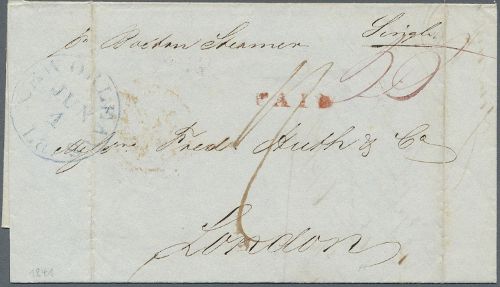 pr Boston Steamer
Single
25
NEW ORLEANS
JUN
1
La
PAID
Messrs. Fredk. Huth & Co
London
1841